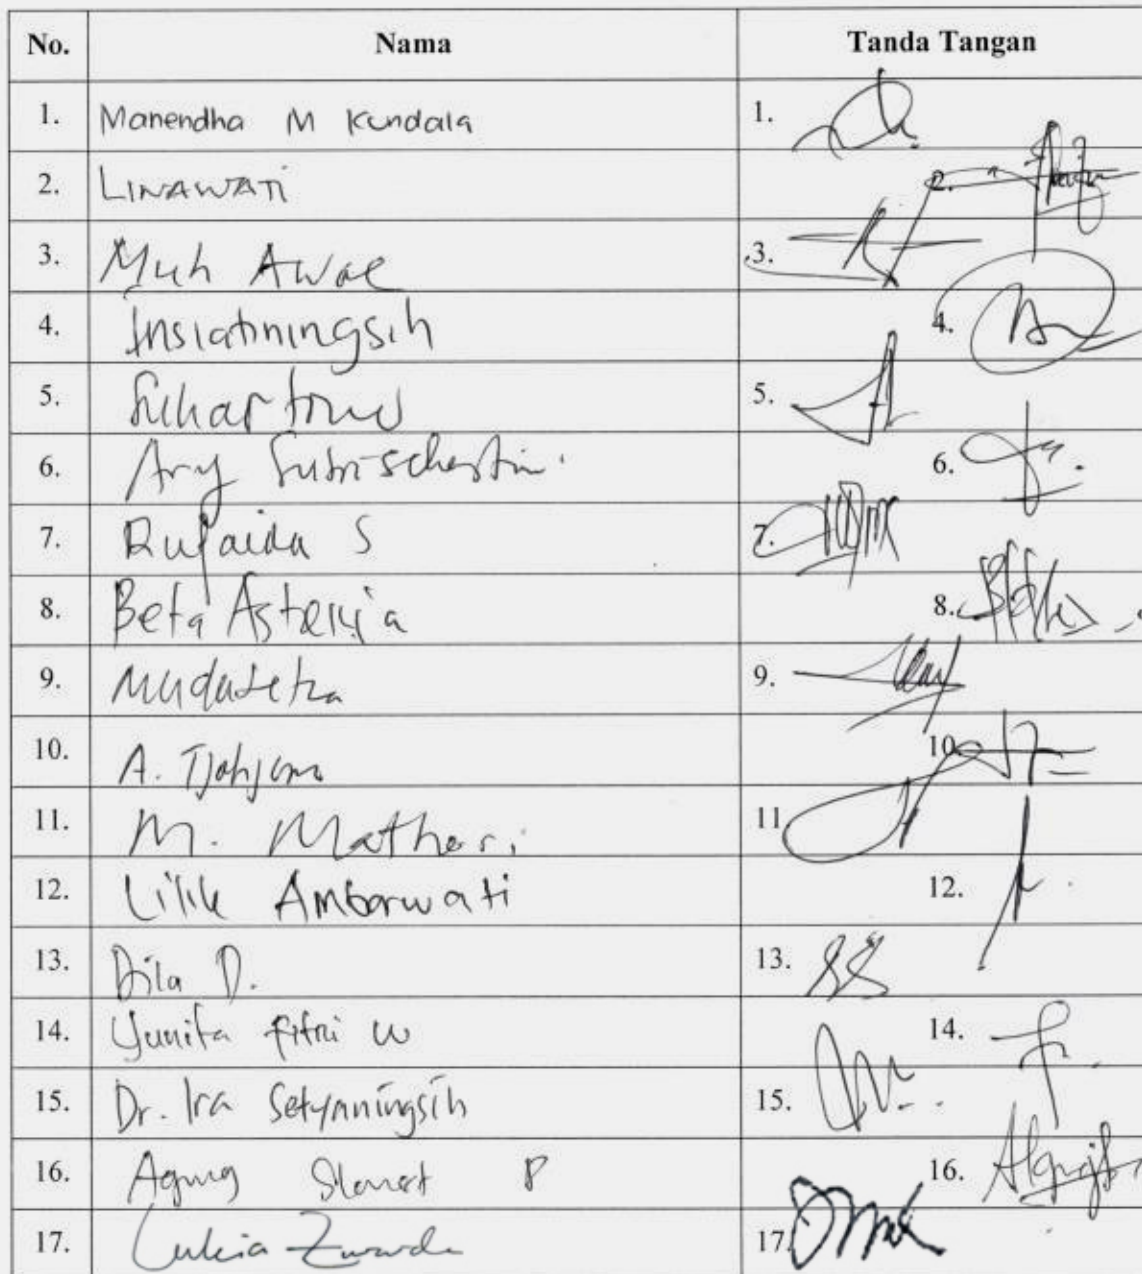 No. Nama Tanda Tangan
1. Manendha M Kundala 1.
2. LINAWATI 2.
3. Muh Awal 3.
4. Insiatiningsih 4.
5. Suhartono 5.
6. Ary 6.
7. Rufaida S 7.
8. Beta Asteria 8.
9. 9.
10. A. Tjahjono 10.
11. M. Mathori 11.
12. Lilik Ambarwati 12.
13. Dila D. 13.
14. Yunita Fitri W 14.
15. Dr. Ira Setyaningsih 15.
16. Agung Slamet P 16.
17. 17.